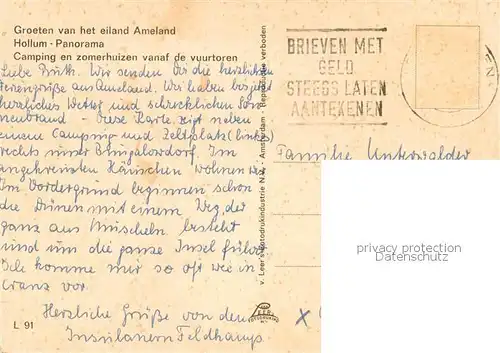 Groeten van het eiland Ameland
Hollum - Panorama
Camping en zomerhuizen vanaf de vuurtoren
Liebe Wir senden Dir die herzlichsten
Feriengrüße aus Ameland. Wir haben bisher
herzliches Wetter und schrecklichen Son-
nenbrand - Diese Karte zeigt neben
einem Camping und Zeltplatz (links)
rechts unser Bungalowdorf. Im
angekreuzten Häuschen wohnen wir.
Im Vordergrund beginnen schon
die Dünen mit einem Weg, der
ganz aus Muscheln besteht
und um die ganze Insel führt.
Ich komme mir so oft wie in
Cranz vor.
Herzliche Grüße von den
Insulanern Feldkamps
L 91
v. Leer's Fotodrukindustrie N.V. - Amsterdam - Reproduktie verboden
BRIEVEN MET
GELD
STEEDS LATEN
AANTEKENEN
Familie Unterwalder
X
privacy protection
Datenschutz